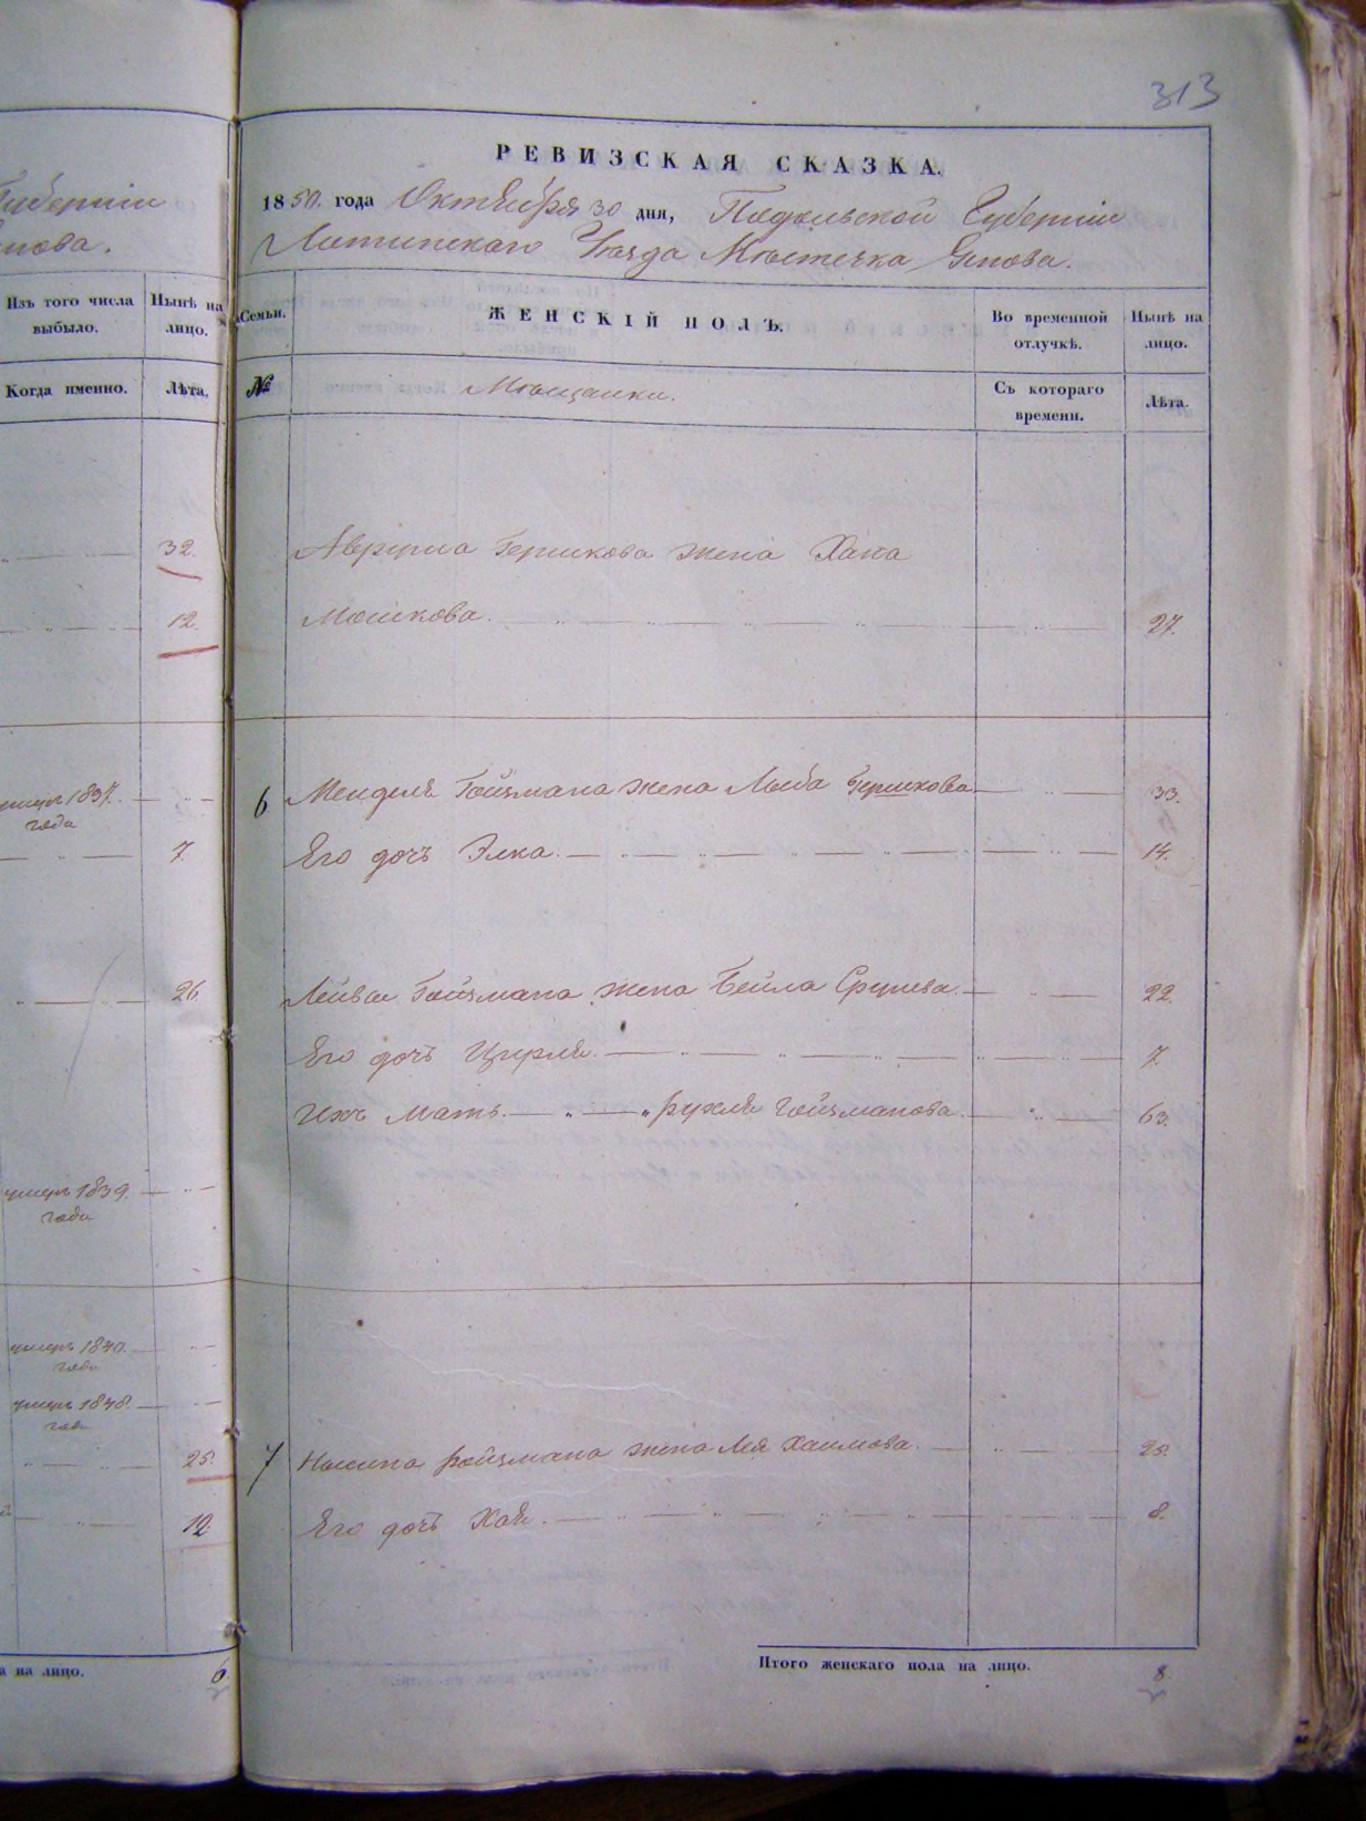 313
Губерніи
нова.
Изъ того числа выбыло.
Нынѣ на лицо.
Когда именно.
Лѣта.
32.
12.
умеръ 1837.
года
7.
26.
умеръ 1839.
года
умеръ 1840.
года
умеръ 1848.
года
25.
12.
а на лицо. 6.
РЕВИЗСКАЯ СКАЗКА.
1850. года Октября 30 дня, Подольской Губерніи
Летичевскаго Уѣзда Мѣстечка Янова.
Семьи.
ЖЕНСКІЙ ПОЛЪ.
Во временной отлучкѣ.
Нынѣ на лицо.
№
Мѣщанки.
Съ котораго времени.
Лѣта.
Гершкова жена Хана
Мошкова. 27.
6 Менделя Гойзмана жена Лыба Гершкова 33.
Его дочь Элка. 14.
Лейбы Гойзмана жена Бейла Сруева. 22.
Его дочь Цирля. 7.
Ихъ мать. Рухля Гойзманова. 63.
7 Нысина Ройзмана жена Лея Хаимова. 25.
Его дочь Хая. 8.
Итого женскаго пола на лицо. 8.